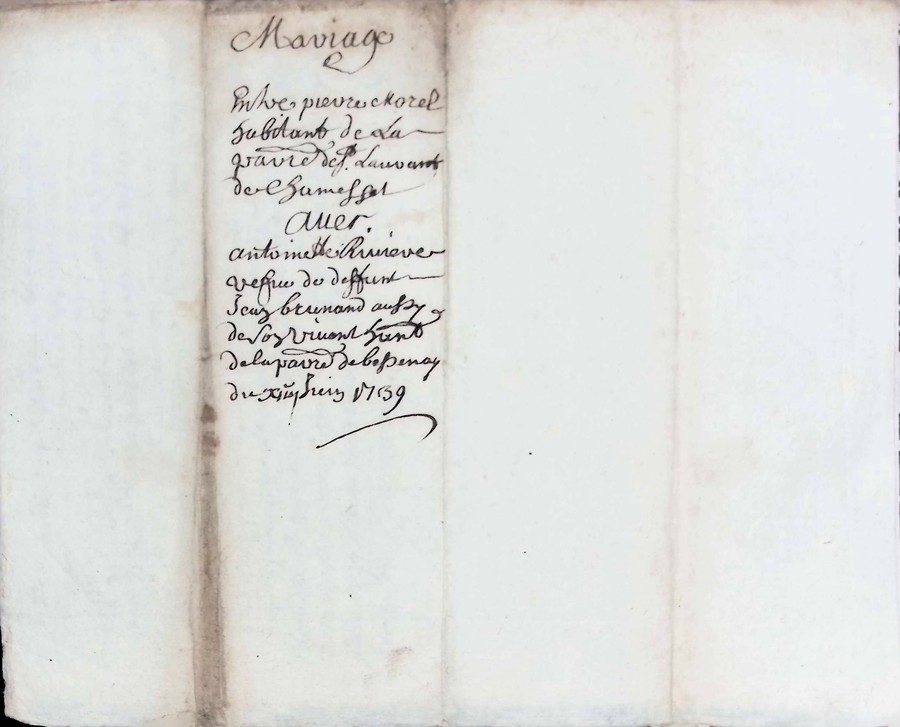 Mariage
Entre pierre Morel
habitant de La
parre de St. Laurant
de Chamosset
Avec
antoinette Riviere
vefve de deffunt
Jean brunand aussy
de son vivant habt
de la parre de bessenay
du Juin 1739